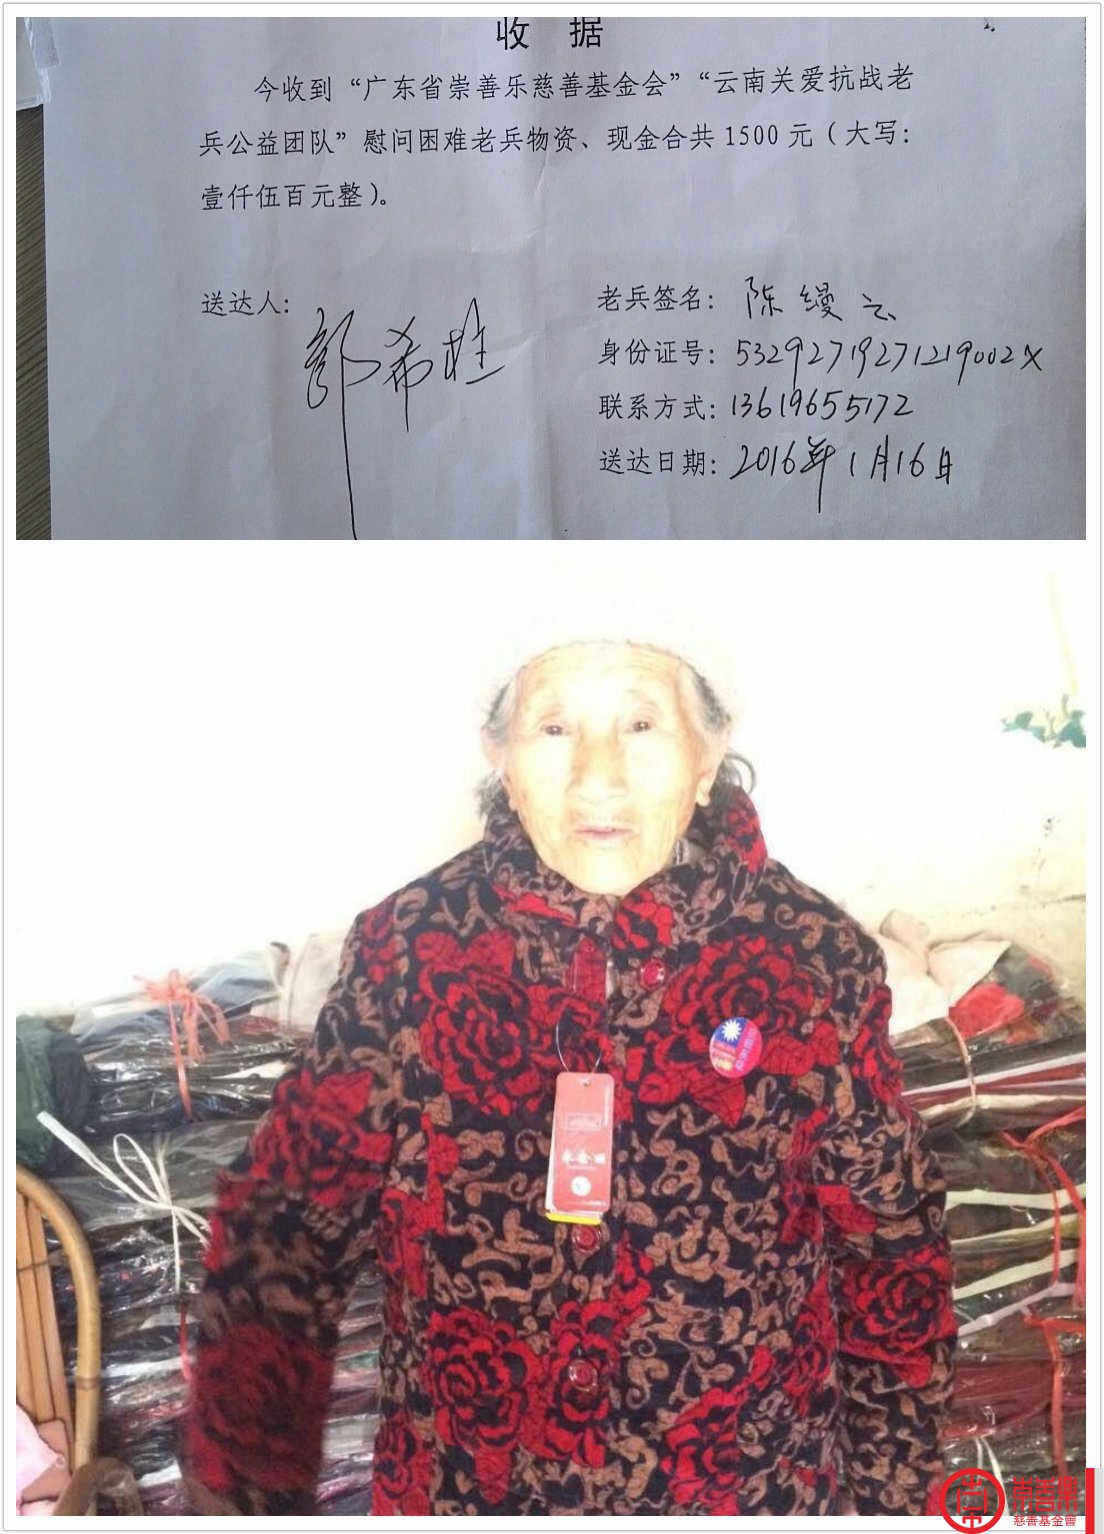 收 据
今收到“广东省崇善乐慈善基金会”“云南关爱抗战老
兵公益团队”慰问困难老兵物资、现金合共 1500 元（大写：
壹仟伍百元整）。
送达人：郭希桂
老兵签名：陈缦云
身份证号：53292719271219002X
联系方式：13619655172
送达日期：2016年1月16日
崇善樂
慈善基金會